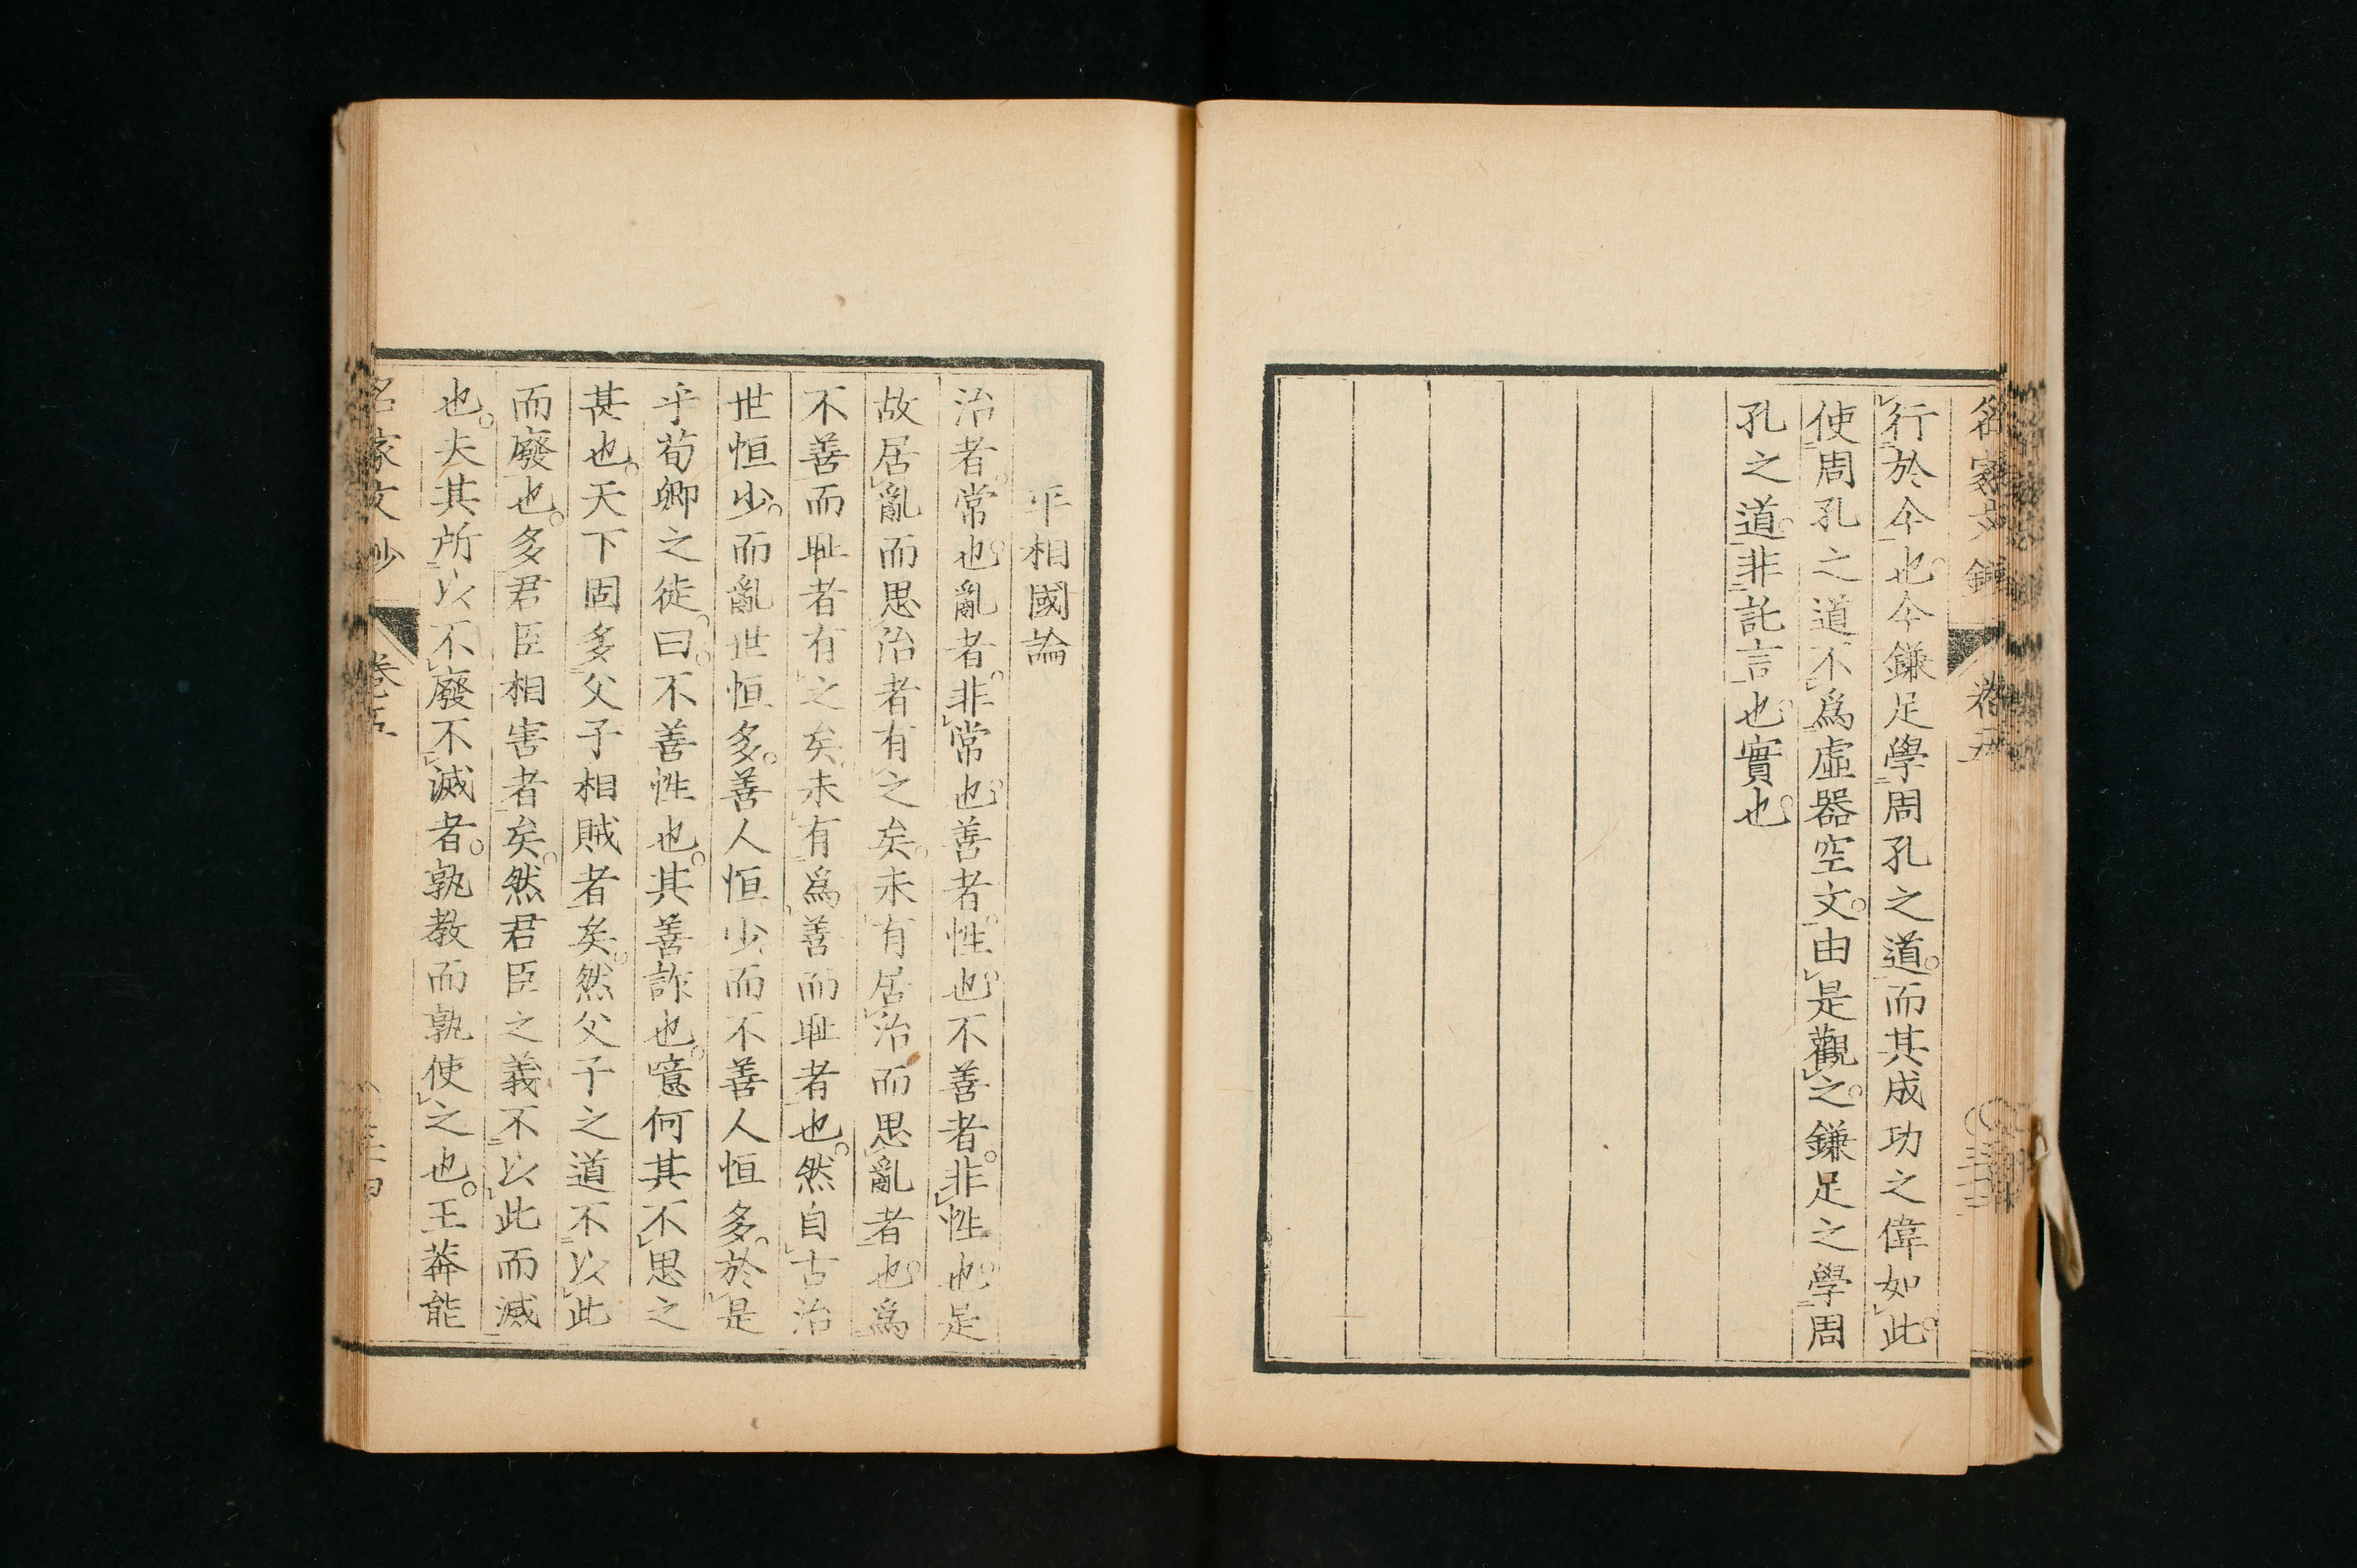 行於今也。今鎌足學周孔之道。而其成功之偉如此。
使周孔之道不爲虛器空文。由是觀之。鎌足之學周
孔之道。非託言也。實也。
平相國論
治者。常也。亂者。非常也。善者。性也。不善者。非性也。是
故居亂而思治者有之矣。未有居治而思亂者也。爲
不善而耻者有之矣。未有爲善而耻者也。然自古治
世恒少。而亂世恒多。善人恒少而不善人恒多。於是
乎荀卿之徒。曰。不善性也。其善詐也。噫何其不思之
甚也。天下固多父子相賊者矣。然父子之道不以此
而廢也。多君臣相害者矣。然君臣之義不以此而滅
也。夫其所以不廢不滅者。孰教而孰使之也。王莽能
名家文抄 卷五